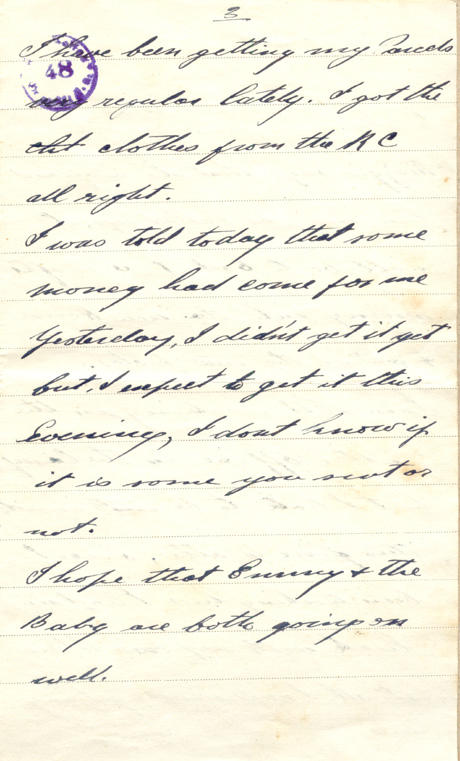 3
I have been getting my Parcels
48
very regular lately. I got the
clothes from the R C
all right.
I was told today that some
money had come for me
yesterday, I didn't get it yet
but I expect to get it this
Evening, I dont know if
it is some you sent or
not.
I hope that Emmy & the
Baby are both going on
well.